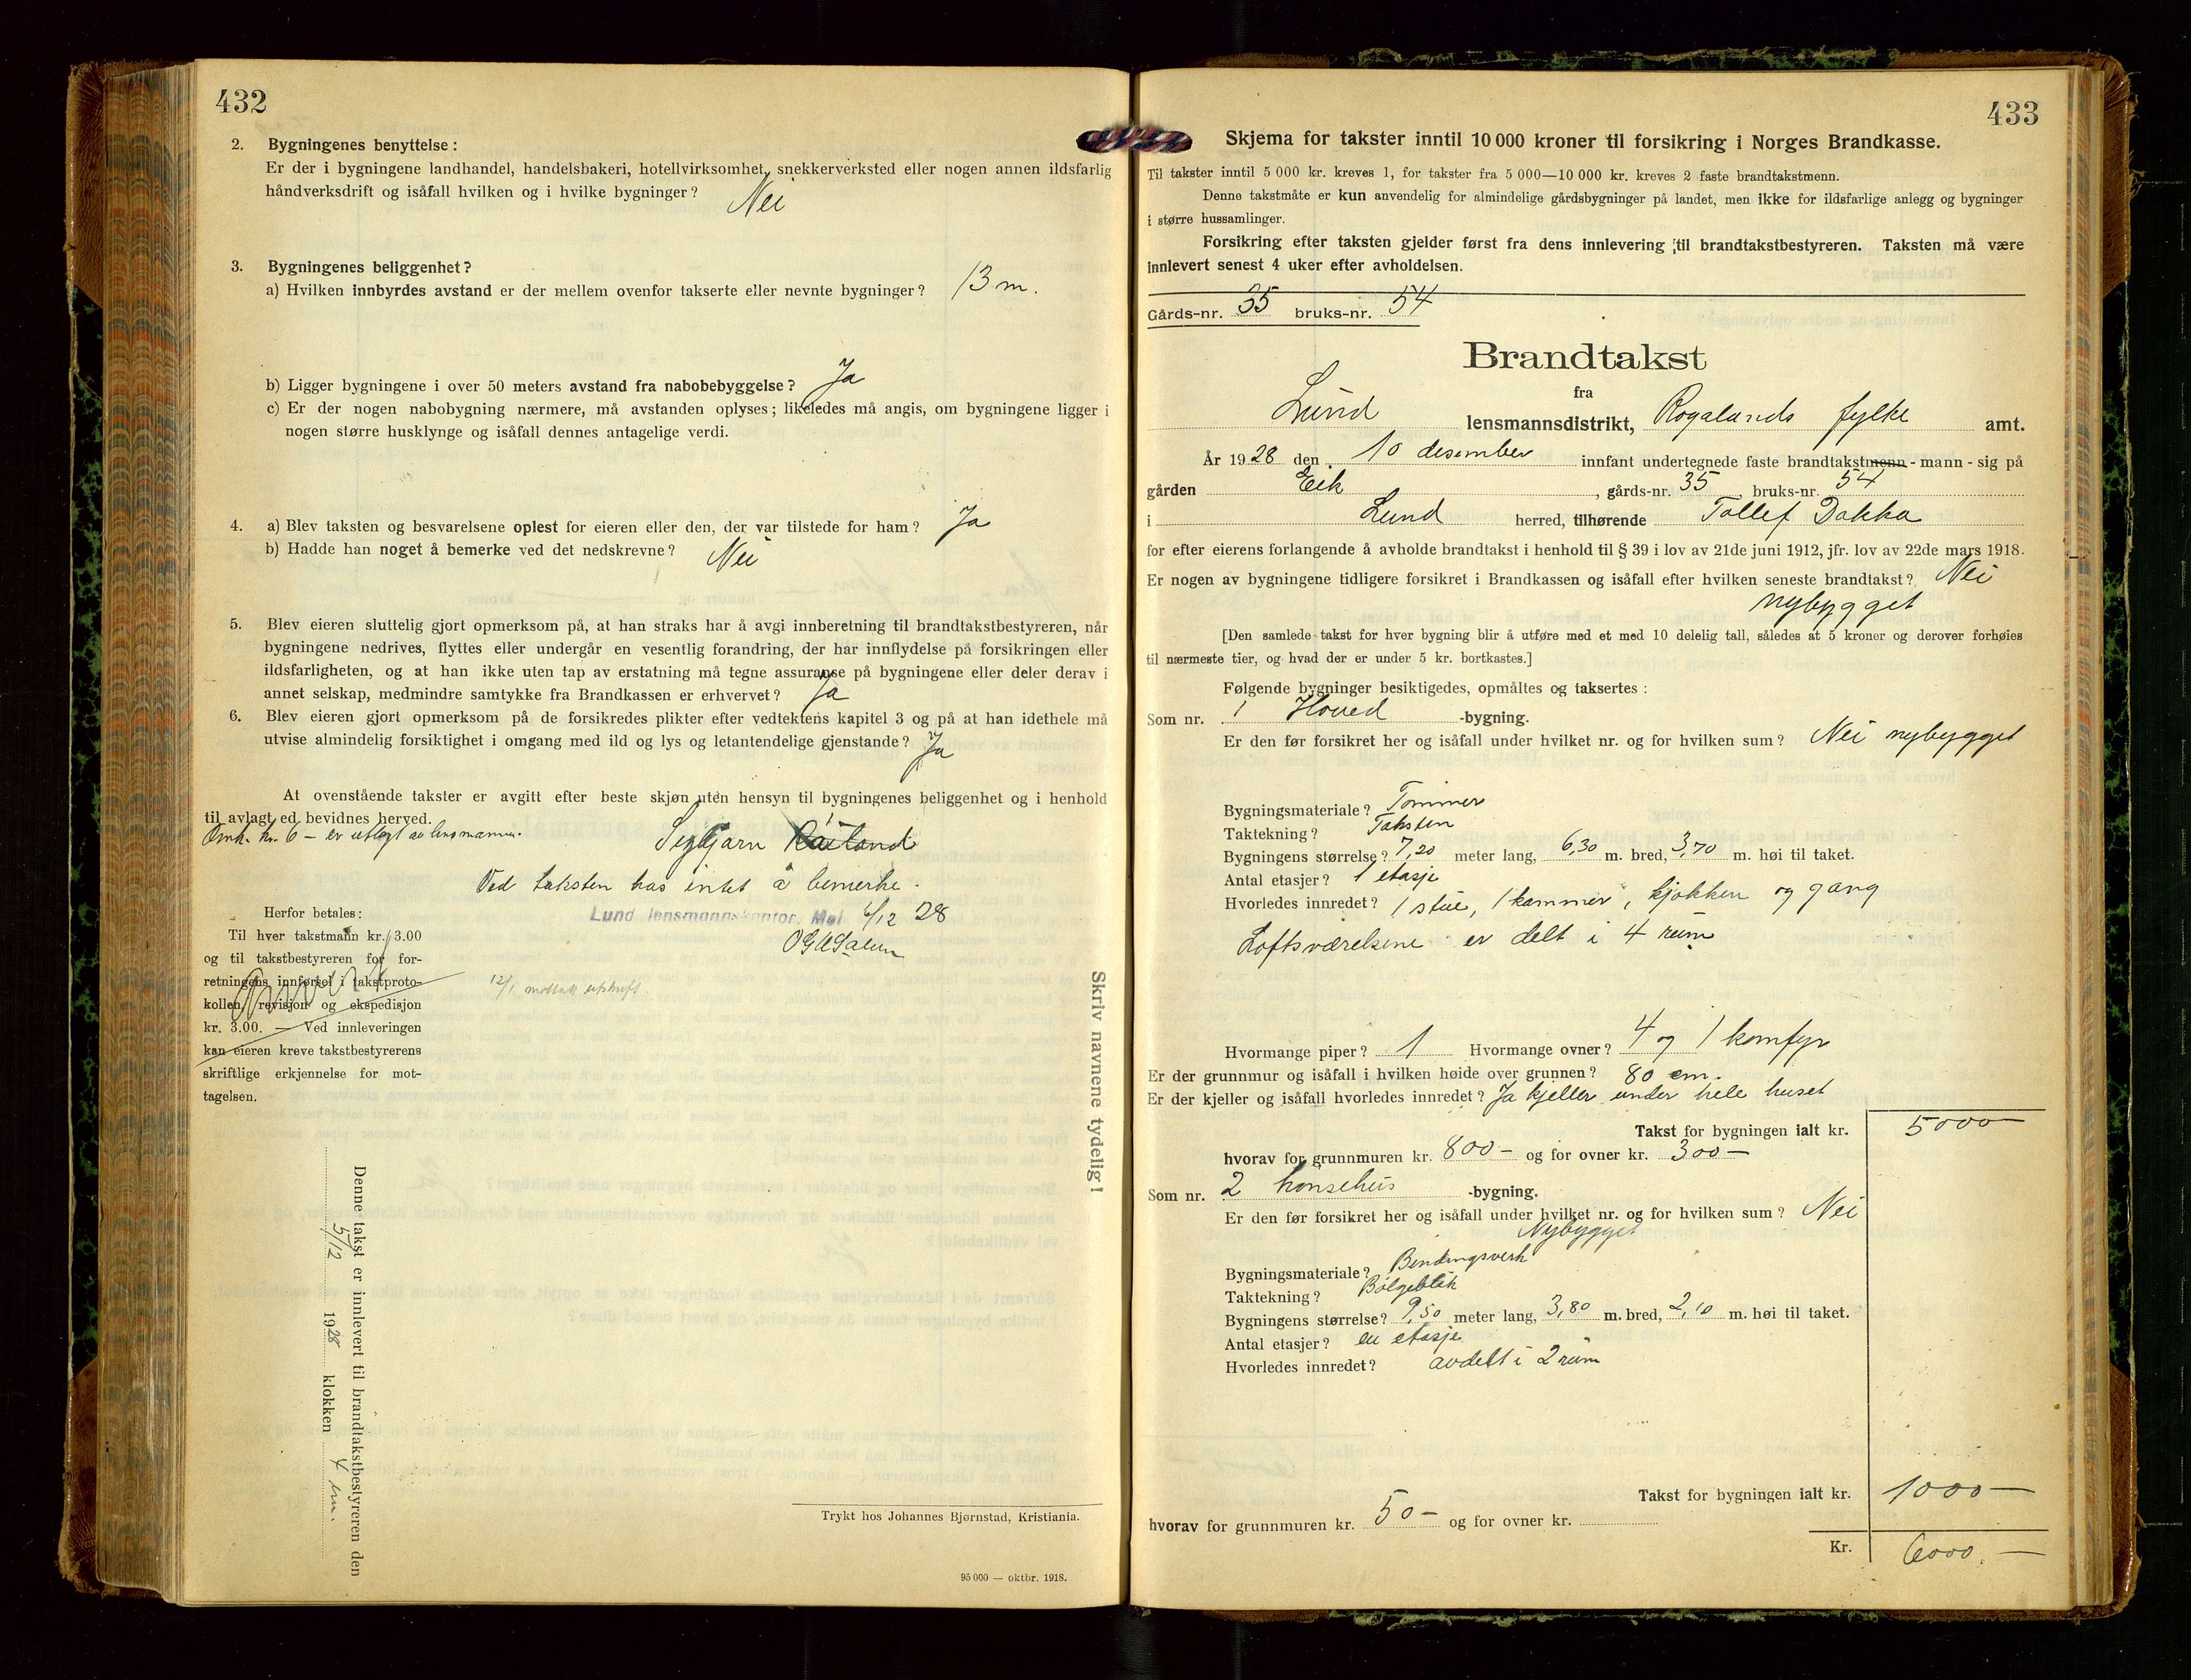 432
2. Bygningenes benyttelse:
Er der i bygningene landhandel, handelsbakeri, hotellvirksomhet, snekkerverksted eller nogen annen ildsfarlig
håndverksdrift og isåfall hvilken og i hvilke bygninger? Nei
3. Bygningenes beliggenhet?
a) Hvilken innbyrdes avstand er der mellem ovenfor takserte eller nevnte bygninger? 13 m.
b) Ligger bygningene i over 50 meters avstand fra nabobebyggelse? Ja
c) Er der nogen nabobygning nærmere, må avstanden oplyses; likeledes må angis, om bygningene ligger i
nogen større husklynge og isåfall dennes antagelige verdi.
4. a) Blev taksten og besvarelsene oplest for eieren eller den, der var tilstede for ham? Ja
b) Hadde han noget å bemerke ved det nedskrevne? Nei
5. Blev eieren sluttelig gjort opmerksom på, at han straks har å avgi innberetning til brandtakstbestyreren, når
bygningene nedrives, flyttes eller undergår en vesentlig forandring, der har innflydelse på forsikringen eller
ildsfarligheten, og at han ikke uten tap av erstatning må tegne assuranse på bygningene eller deler derav i
annet selskap, medmindre samtykke fra Brandkassen er erhvervet? Ja
6. Blev eieren gjort opmerksom på de forsikredes plikter efter vedtektens kapitel 3 og på at han idethele må
utvise almindelig forsiktighet i omgang med ild og lys og letantendelige gjenstande? Ja
At ovenstående takster er avgitt efter beste skjøn uten hensyn til bygningenes beliggenhet og i henhold
til avlagt ed bevidnes herved.
Omk. kr. 6 – er utlagt av lensmannen.
Ved taksten has intet å bemerke.
Lund lensmannskontor, Moi 6/12 28
Herfor betales:
Til hver takstmann kr. 3.00
og til takstbestyreren for for-
retningens innførsel i takstproto-
kollen, revisjon og ekspedisjon
kr. 3.00. — Ved innleveringen
kan eieren kreve takstbestyrerens
skriftlige erkjennelse for mot-
tagelsen.
12/1 mottatt utskrift.
Skriv navnene tydelig!
Denne takst er innlevert til brandtakstbestyreren den
5/12 1928 klokken 4 em.
Trykt hos Johannes Bjørnstad, Kristiania.
95 000 — oktbr. 1918.
433
Skjema for takster inntil 10 000 kroner til forsikring i Norges Brandkasse.
Til takster inntil 5 000 kr. kreves 1, for takster fra 5 000—10 000 kr. kreves 2 faste brandtakstmenn.
Denne takstmåte er kun anvendelig for almindelige gårdsbygninger på landet, men ikke for ildsfarlige anlegg og bygninger
i større hussamlinger.
Forsikring efter taksten gjelder først fra dens innlevering til brandtakstbestyreren. Taksten må være
innlevert senest 4 uker efter avholdelsen.
Gårds-nr. 35 bruks-nr. 54
Brandtakst
fra
Lund lensmannsdistrikt, Rogalands fylke amt.
År 1928 den 10 desember innfant undertegnede faste brandtakstmenn - mann - sig på
gården Eik, gårds-nr. 35 bruks-nr. 54
i Lund herred, tilhørende Tollef Dakka
for efter eierens forlangende å avholde brandtakst i henhold til § 39 i lov av 21de juni 1912, jfr. lov av 22de mars 1918.
Er nogen av bygningene tidligere forsikret i Brandkassen og isåfall efter hvilken seneste brandtakst? Nei
nybygget
[Den samlede takst for hver bygning blir å utføre med et med 10 delelig tall, således at 5 kroner og derover forhøies
til nærmeste tier, og hvad der er under 5 kr. bortkastes.]
Følgende bygninger besiktigedes, opmåltes og taksertes:
Som nr. 1 Hoved -bygning.
Er den før forsikret her og isåfall under hvilket nr. og for hvilken sum? Nei nybygget
Bygningsmateriale? Tømmer
Taktekning? Taksten
Bygningens størrelse? 7,20 meter lang, 6,30 m. bred, 3,70 m. høi til taket.
Antal etasjer? 1 etasje
Hvorledes innredet? 1 stue, 1 kammer, kjøkken og gang
Loftsværelsene er delt i 4 rum
Hvormange piper? 1 Hvormange ovner? 4 og 1 komfyr
Er der grunnmur og isåfall i hvilken høide over grunnen? 80 cm.
Er der kjeller og isåfall hvorledes innredet? Ja kjeller under hele huset
Takst for bygningen ialt kr. 5000—
hvorav for grunnmuren kr. 800– og for ovner kr. 300–
Som nr. 2 hønsehus -bygning.
Er den før forsikret her og isåfall under hvilket nr. og for hvilken sum? Nei
Nybygget
Bygningsmateriale? Bindingsverk
Taktekning? Bølgeblik
Bygningens størrelse? 9,50 meter lang, 3,80 m. bred, 2,10 m. høi til taket.
Antal etasjer? en etasje
Hvorledes innredet? avdelt i 2 rum
Takst for bygningen ialt kr. 1000—
hvorav for grunnmuren kr. 50– og for ovner kr.
Kr. 6000.—